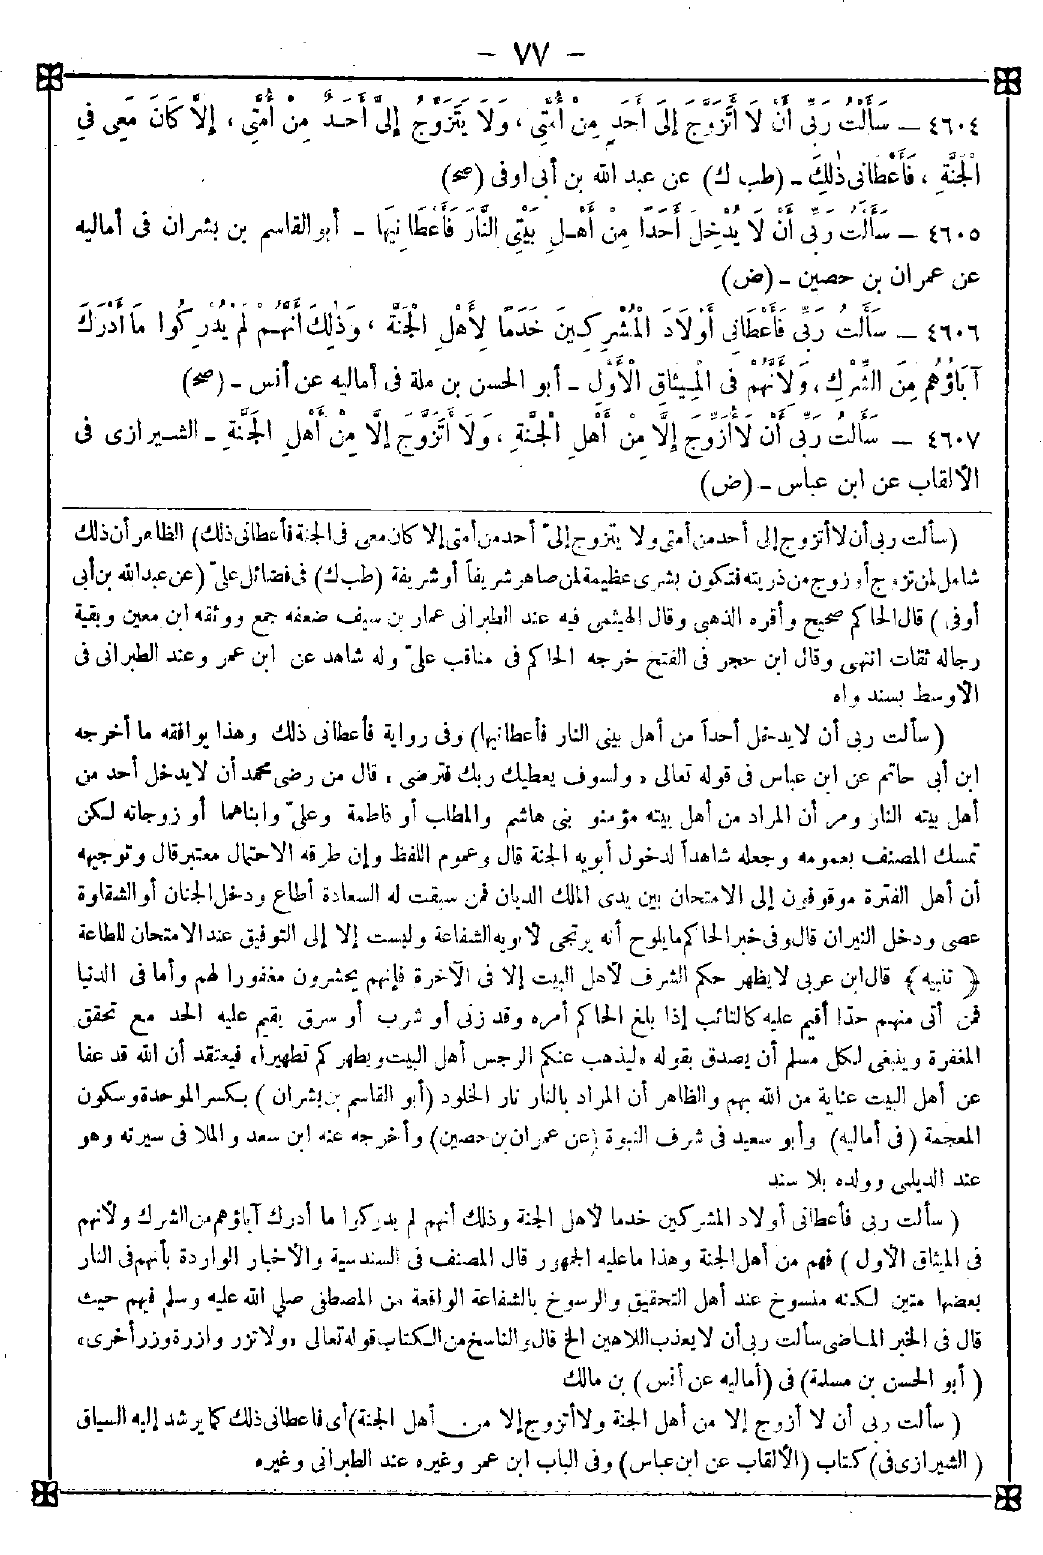 - ٧٧ -
٤٦٠٤ - سَأَلْتُ رَبِّي أَنْ لَا أَتَزَوَّجَ إِلَى أَحَدٍ مِنْ أُمَّتِي، وَلَا يَتَزَوَّجُ إِلَيَّ أَحَدٌ مِنْ أُمَّتِي، إِلَّا كَانَ مَعِي فِي
الْجَنَّةِ، فَأَعْطَانِي ذٰلِكَ - (طب ك) عن عبد الله بن أبي أوفى (صح)
٤٦٠٥ - سَأَلْتُ رَبِّي أَنْ لَا يُدْخِلَ أَحَدًا مِنْ أَهْلِ بَيْتِي النَّارَ فَأَعْطَانِيهَا - أبو القاسم بن بشران فى أماليه
عن عمران بن حصين - (ض)
٤٦٠٦ - سَأَلْتُ رَبِّي فَأَعْطَانِي أَوْلَادَ الْمُشْرِكِينَ خَدَمًا لِأَهْلِ الْجَنَّةِ، وَذٰلِكَ أَنَّهُمْ لَمْ يُدْرِكُوا مَا أَدْرَكَ
آبَاؤُهُمْ مِنَ الشِّرْكِ، وَلِأَنَّهُمْ فِي الْمِيثَاقِ الْأَوَّلِ - أبو الحسن بن ملة فى أماليه عن أنس - (صح)
٤٦٠٧ - سَأَلْتُ رَبِّي أَنْ لَا أُزَوِّجَ إِلَّا مِنْ أَهْلِ الْجَنَّةِ، وَلَا أَتَزَوَّجَ إِلَّا مِنْ أَهْلِ الْجَنَّةِ - الشيرازى فى
الألقاب عن ابن عباس - (ض)
(سألت ربى أن لا أتزوج إلى أحد من أمتى ولا يتزوج إلىّ أحد من أمتى إلا كان معى فى الجنة فأعطانى ذلك) الظاهر أن ذلك
شامل لمن تزوج أو زوج من ذريته فتكون بشرى عظيمة لمن صاهر شريفاً أو شريفة (طب ك) فى فضائل علىّ (عن عبدالله بن أبى
أوفى) قال الحاكم صحيح وأقره الذهبى وقال الهيثمى فيه عند الطبرانى عمار بن سيف ضعفه جمع ووثقه ابن معين وبقية
رجاله ثقات انتهى وقال ابن حجر فى الفتح خرجه الحاكم فى مناقب علىّ وله شاهد عن ابن عمر وعند الطبرانى فى
الأوسط بسند واه
(سألت ربى أن لا يدخل أحداً من أهل بيتى النار فأعطانيها) وفى رواية فأعطانى ذلك وهذا يوافقه ما أخرجه
ابن أبى حاتم عن ابن عباس فى قوله تعالى «ولسوف يعطيك ربك فترضى» قال من رضى محمد أن لا يدخل أحد من
أهل بيته النار ومر أن المراد من أهل بيته مؤمنو بنى هاشم والمطلب أو فاطمة وعلىّ وابناهما أو زوجاته لكن
تمسك المصنف بعمومه وجعله شاهداً لدخول أبويه الجنة قال وعموم اللفظ وإن طرقه الاحتمال معتبر قال وتوجيهه
أن أهل الفترة موقوفون إلى الامتحان بين يدى الملك الديان فمن سبقت له السعادة أطاع ودخل الجنان أو الشقاوة
عصى ودخل النيران قال وفى خبر الحاكم ما يلوح أنه يرتجى لأبويه الشفاعة وليست إلا إلى التوفيق عند الامتحان للطاعة
﴿ تنبيه ﴾ قال ابن عربى لا يظهر حكم الشرف لأهل البيت إلا فى الآخرة فإنهم يحشرون مغفورا لهم وأما فى الدنيا
فمن أتى منهم حدّا أقيم عليه كالتائب إذا بلغ الحاكم أمره وقد زنى أو شرب أو سرق يقيم عليه الحد مع تحقق
المغفرة وينبغى لكل مسلم أن يصدق بقوله «ليذهب عنكم الرجس أهل البيت ويطهركم تطهيرا» فيعتقد أن الله قد عفا
عن أهل البيت عناية من الله بهم والظاهر أن المراد بالنار نار الخلود (أبو القاسم بن بشران) بكسر الموحدة وسكون
المعجمة (فى أماليه) وأبو سعيد فى شرف النبوة (عن عمران بن حصين) وأخرجه عنه ابن سعد والملا فى سيرته وهو
عند الديلمى وولده بلا سند
(سألت ربى فأعطانى أولاد المشركين خدما لأهل الجنة وذلك أنهم لم يدركوا ما أدرك آباؤهم من الشرك ولأنهم
فى الميثاق الأول) فهم من أهل الجنة وهذا ما عليه الجمهور قال المصنف فى السندسية والأخبار الواردة بأنهم فى النار
بعضها متين لكنه منسوخ عند أهل التحقيق والرسوخ بالشفاعة الواقعة من المصطفى صلي الله عليه وسلم فيهم حيث
قال فى الخبر المـاضى سألت ربى أن لا يعذب اللاهين الخ قال والناسخ من الكتاب قوله تعالى «ولا تزر وازرة وزر أخرى»
(أبو الحسن بن مسلة) فى (أماليه عن أنس) بن مالك
(سألت ربى أن لا أزوج إلا من أهل الجنة ولا أتزوج إلا من أهل الجنة) أى فاعطانى ذلك كما يرشد إليه السياق
(الشيرازى فى) كتاب (الألقاب عن ابن عباس) وفى الباب ابن عمر وغيره عند الطبرانى وغيره